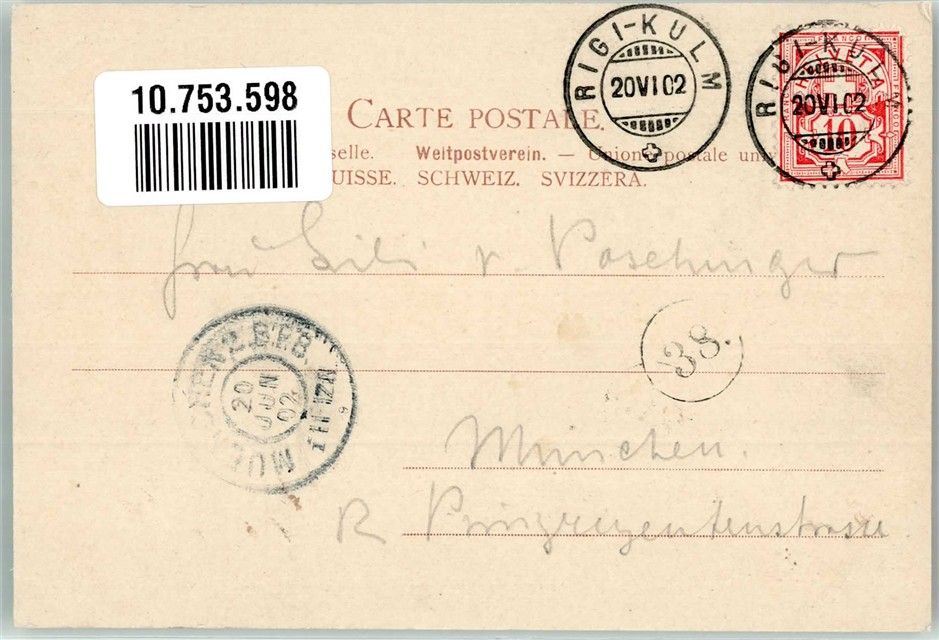 10.753.598
CARTE POSTALE.
selle. Weltpostverein. — Union postale un
UISSE. SCHWEIZ. SVIZZERA.
RIGI-KULM
20 VI 02
RIGI-KULM
20 VI 02
HELVETIA
FRANCO
10
Frau Lili v. Poschinger
MUENCHEN 2. B.P.B.
20
JUN
02
38.
München.
R Prinzregentenstrasse